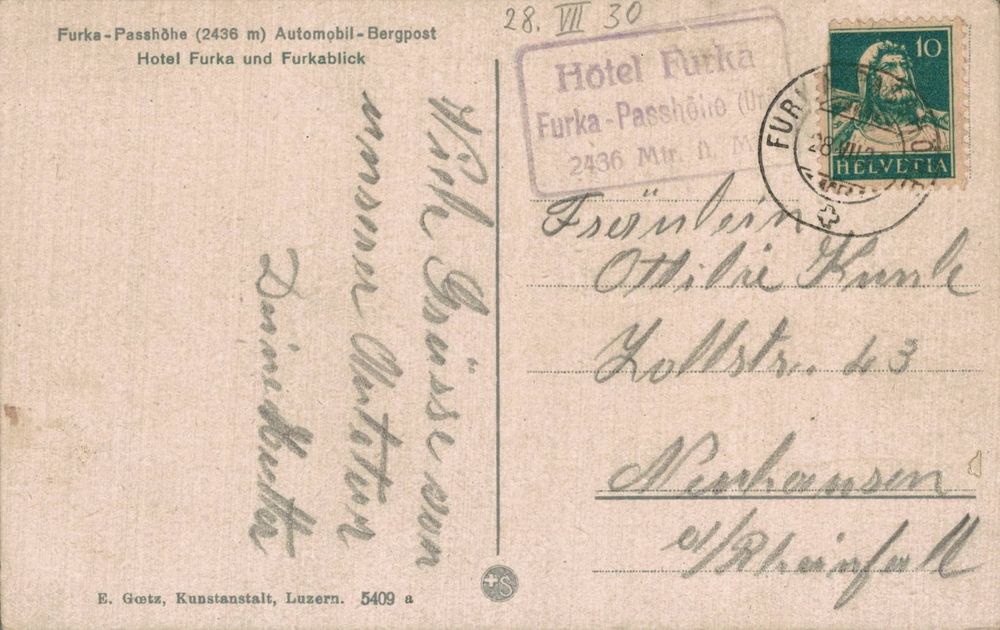 Furka-Passhöhe (2436 m) Automobil-Bergpost
Hotel Furka und Furkablick
28. VII 30
Hotel Furka
Furka-Passhöhe (Uri)
2436 Mtr. ü. M.
10
HELVETIA
FURKA
28.VII.
Viele Grüsse von
unserer
Deine Mutter
Fräulein
Ottilie Kunk
Zollstr. 43
Neuhausen
a/Rheinfall
E. Gœtz, Kunstanstalt, Luzern. 5409 a
S